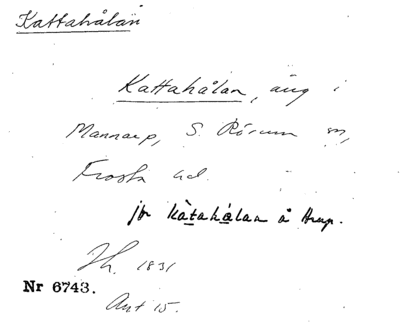 Kattahålan
Kattahålan, äng i
Mannarp, S. Rörum sn,
Frosta hd.
jfr kàtahálan å Hrup.
Th. 1831
Nr 6743.
Ant 15.